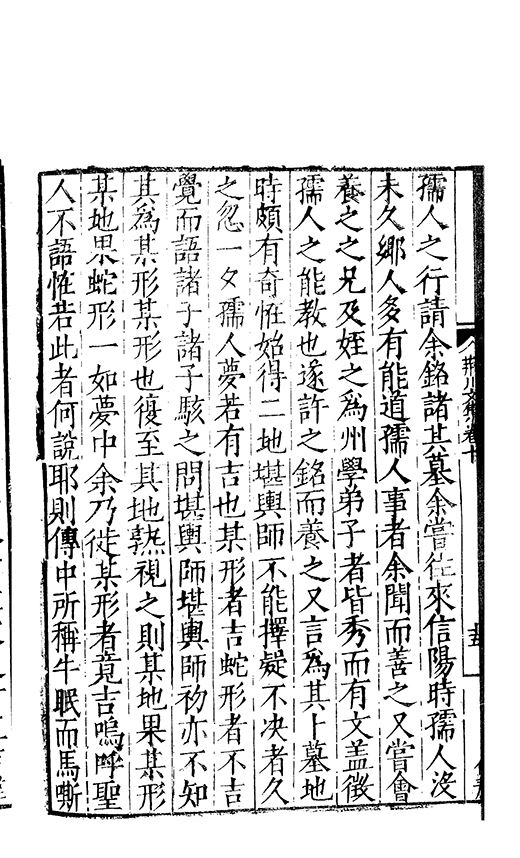 荊川文集卷十
孺人之行請余銘諸其墓余嘗往來信陽時孺人沒
未久鄉人多有能道孺人事者余聞而善之又嘗會
養之之兄及姪之為州學弟子者皆秀而有文盖徵
孺人之能教也遂許之銘而養之又言為其卜墓地
時頗有奇恠始得二地堪輿師不能擇疑不决者久
之忽一夕孺人夢若有吉也某形者吉蛇形者不吉
覺而語諸子諸子駭之問堪輿師堪輿師初亦不知
其為某形某形也復至其地熟視之則某地果某形
某地果蛇形一如夢中余乃徙某形者竟吉嗚呼聖
人不語恠若此者何說耶則傳中所稱牛眠而馬嘶